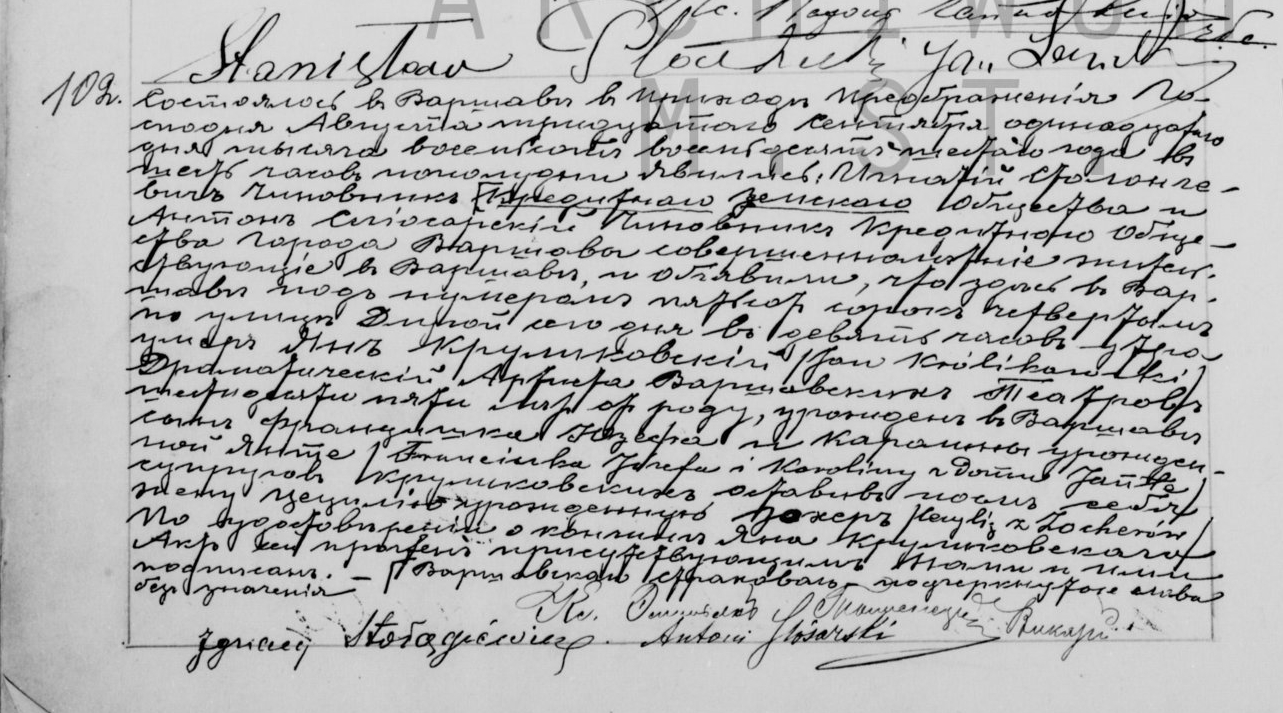 ARCHIWUM
M. ST
Кс.
Stanisław Jan
102. Состоялось в Варшаве в приходе Преображения Го-
сподня Августа тридцатаго Сентября одинадцатаго
дня тысяча восемьсотъ восемьдесятъ шестаго года въ
шесть часовъ пополудни явились: Игнатій Столонге-
вичъ Чиновникъ [Кредитнаго Земскаго Общества и
Антонъ Слюсарскій Чиновникъ Кредитнаго Обще-
ства Города Варшавы совершеннолѣтніе житель-
ствующіе въ Варшавѣ, и объявили, что здѣсь въ Вар-
шавѣ подъ нумеромъ пятьсотъ сорокъ четвертымъ
по улицѣ Дикой сего дня въ девять часовъ утра
умеръ Янъ Круликовскій /Jan Królikowski/
Драматическій Артистъ Варшавскихъ Театровъ
шестидесяти пяти лѣтъ отъ роду, урожденъ въ Варшавѣ
сынъ Францишка Юзефа и Каролины урожден-
ной Янтше /Franciszka Józefa i Karoliny z domu Jantsche/
супруговъ Круликовскихъ оставивъ послѣ себя
жену Цецилію урожденную Цохеръ /Cecylię z Zocherów/
По удостовѣреніи о кончинѣ Яна Круликовскаго
Актъ сей прочтенъ присутствующимъ Нами и ими
подписанъ. — [Варшавскаго страховаго — подчеркнутое слова
безъ значенія —
Кс. Викарій
Ignacy Stołągiewicz. Antoni Ślósarski